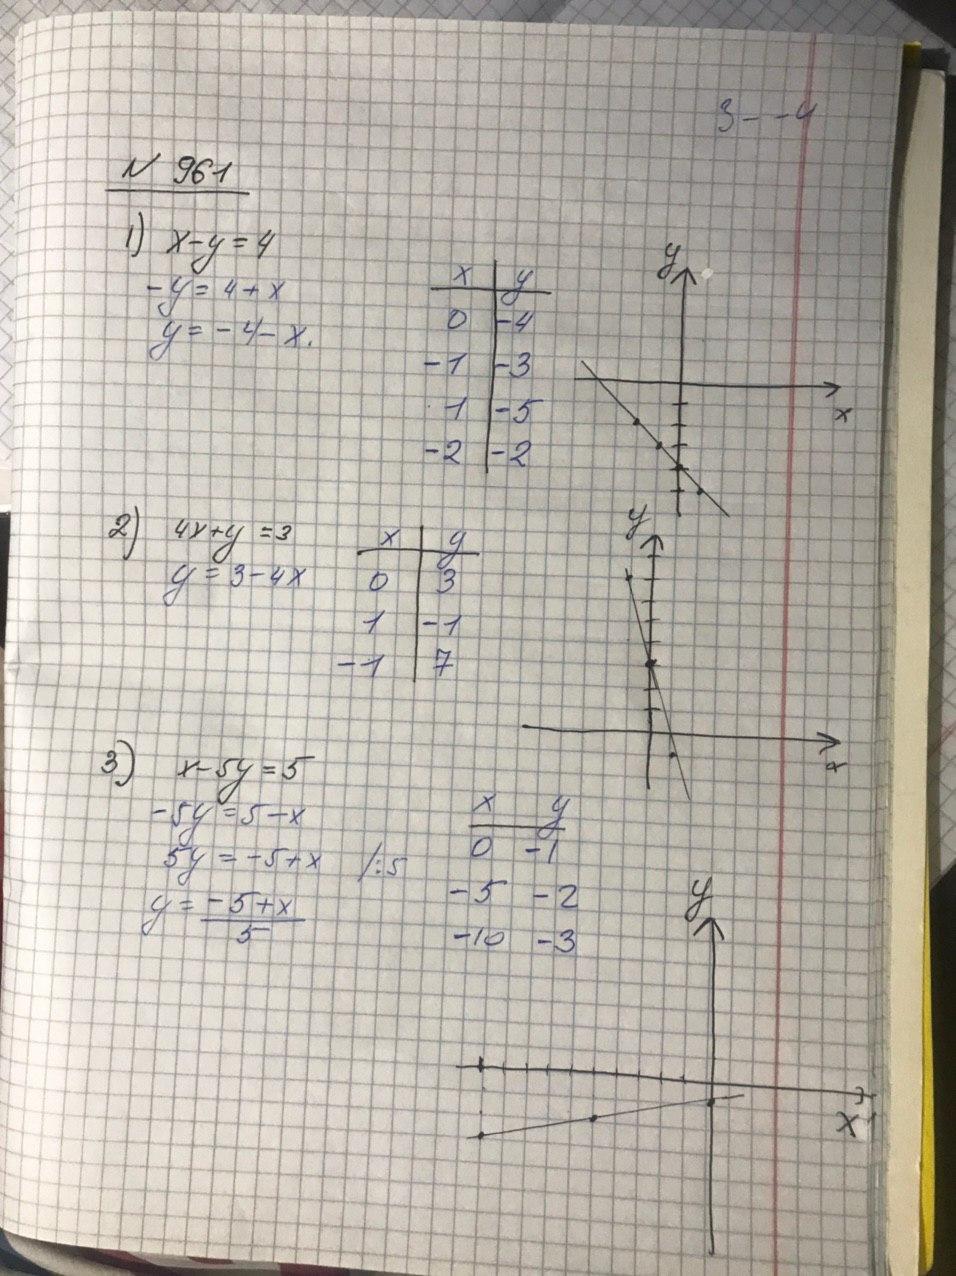 3--4
N 961
1) x-y=4
-y=4+x
y=-4-x.
x y
0 -4
-1 -3
1 -5
-2 -2
y
x
2) 4x+y=3
y=3-4x
x y
0 3
1 -1
-1 7
y
x
3) x-5y=5
-5y=5-x
5y=-5+x /:5
y=\frac{-5+x}{5}
x y
0 -1
-5 -2
-10 -3
y
x